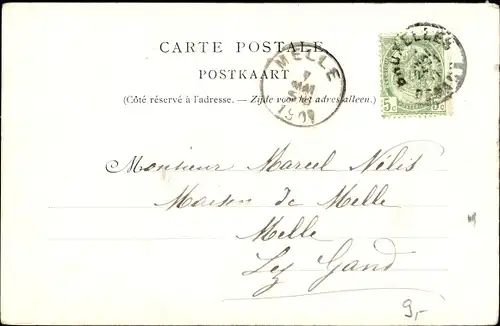 CARTE POSTALE
POSTKAART
(Côté réservé à l'adresse. — Zijde voor het adres alleen.)
MELLE
7
MAI
1901
BRUXELLES
5c 5c
Monsieur Marcel Nélis
Maison de Melle
Melle
Lez Gand
9,-